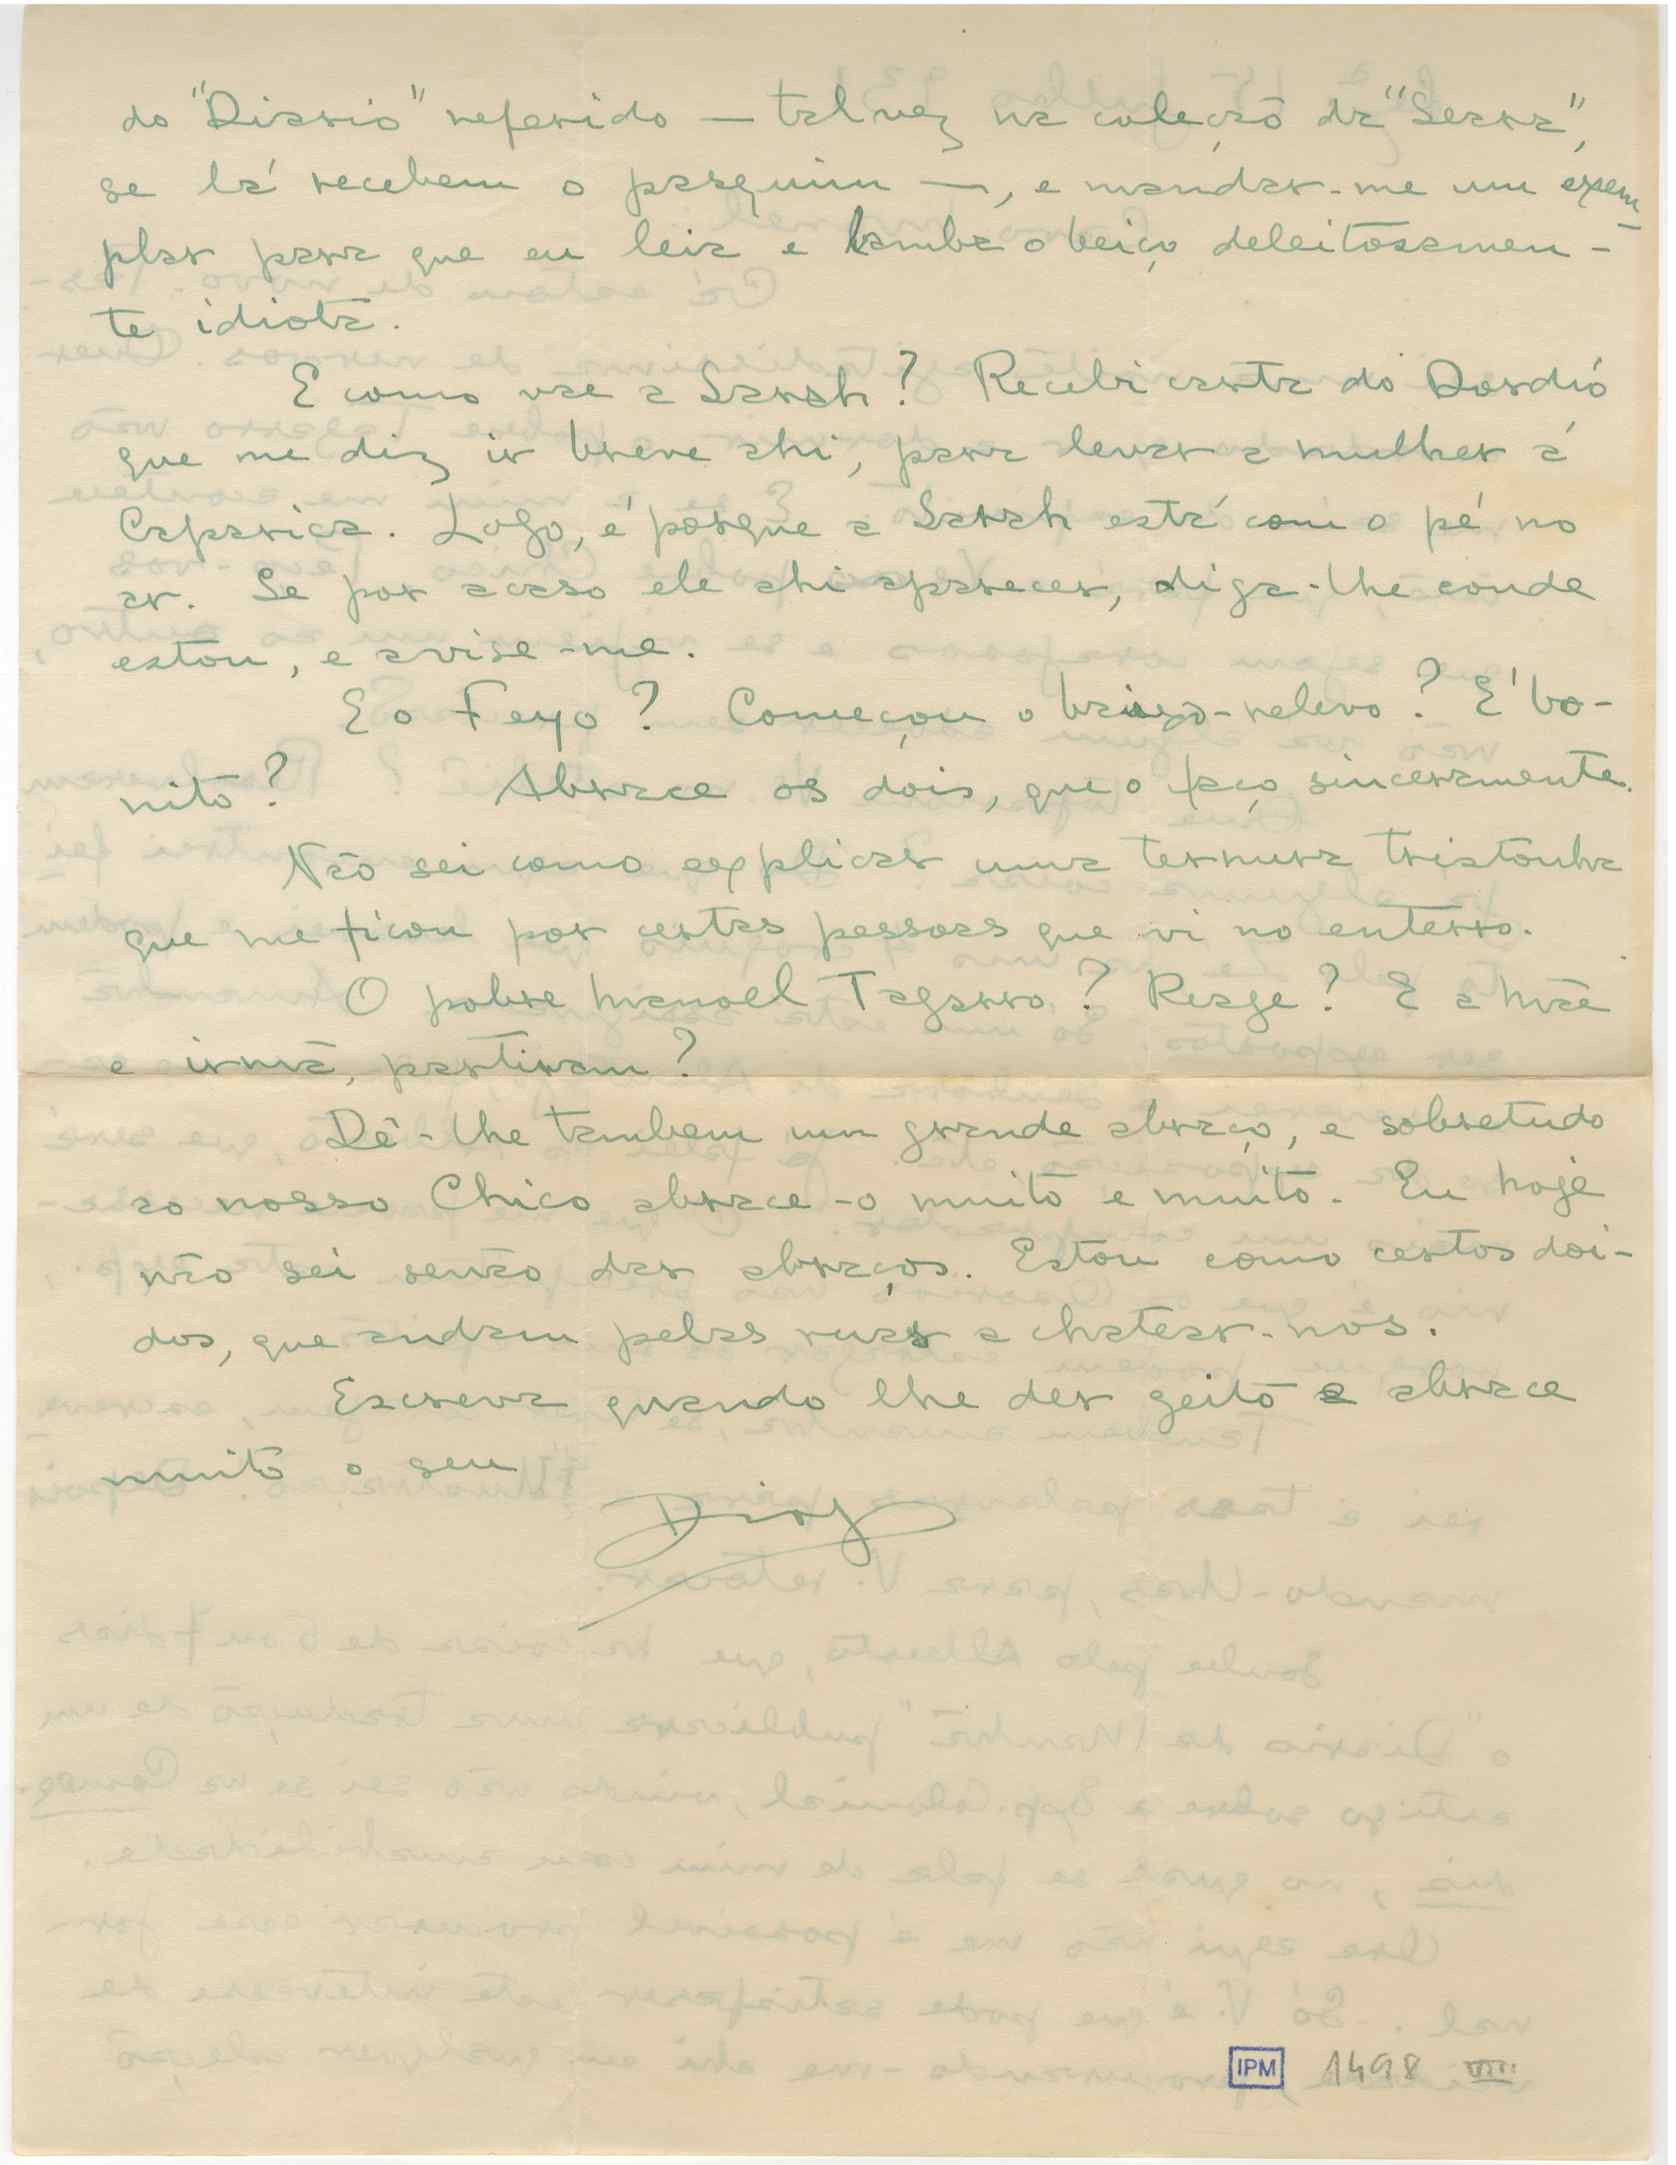 do "Diario" referido — talvez na coleção da "Seara",
se lá recebem o pasquim —, e mandar-me um exem-
plar para que eu leia e lamba o beiço deleitosamen-
te idiota.
E como vae a Sarah? Recebi carta do Dordio
que me diz ir breve ahi, para levar a mulher á
Caparica. Logo, é porque a Sarah está com o pé no
ar. Se por acaso ele ahi aparecer, diga-lhe aonde
estou, e avise-me.
E o Feyo? Começou o baixo-relevo? É bo-
nito? Abrace os dois, que o faço sinceramente.
Não sei como explicar uma ternura tristonha
que me ficou por certas pessoas que vi no enterro.
O pobre Manoel Tagarro? Reage? E a Mãe
e irmã, partiram?
Dê-lhe tambem um grande abraço, e sobretudo
ao nosso Chico abrace-o muito e muito. Eu hoje
não sei senão dar abraços. Estou como certos doi-
dos, que andam pelas ruas a chatear-nos.
Escreva quando lhe der geito e abrace
muito o seu
Diogo
IPM 1498 VIII